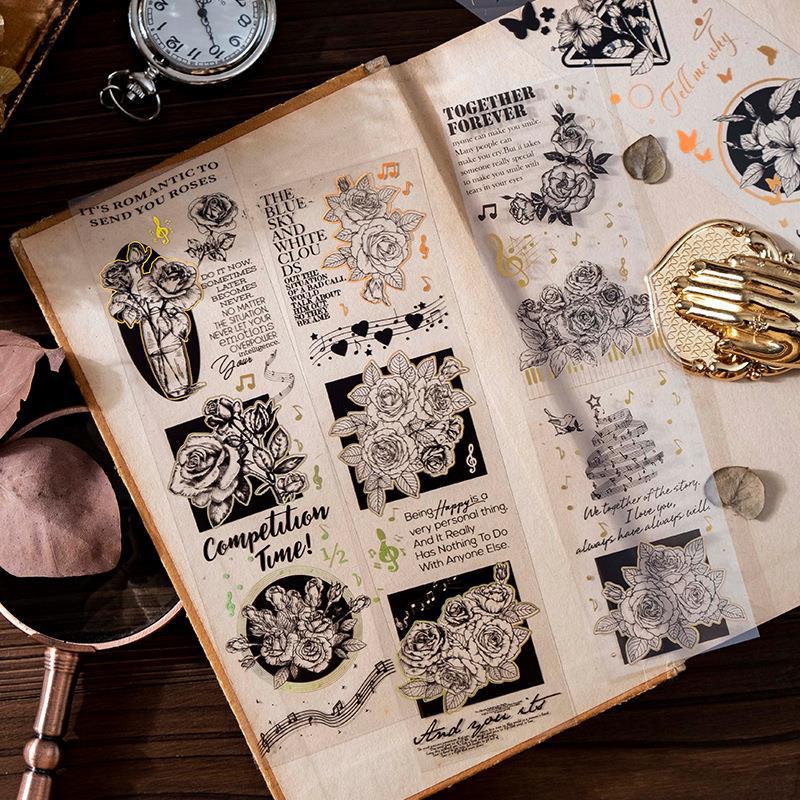 IT'S ROMANTIC TO
SEND YOU ROSES
DO IT NOW.
SOMETIMES
LATER
BECOMES
NEVER.
NO MATTER
THE SITUATION,
NEVER LET YOUR
emotions
OVERPOWER
intelligence.
Your
Competition
Time!
1/2
THE
BLUE-
SKY
AND
WHITE
CLOU
DS
OUT THE
SITUATION
OF A BAD CALL.
WOULD
TALK ABOUT
HIM LAT
SO THEY
BECAME
Being Happy is a
very personal thing.
And It Really
Has Nothing To Do
With Anyone Else.
And you its
TOGETHER
FOREVER
nyone can make you smile.
Many people can
make you cry. But it takes
someone really special
to make you smile with
tears in your eyes
We together of the story.
I love you,
always have always will.
Tell me why
12
1
2
3
4
5
6
7
8
9
10